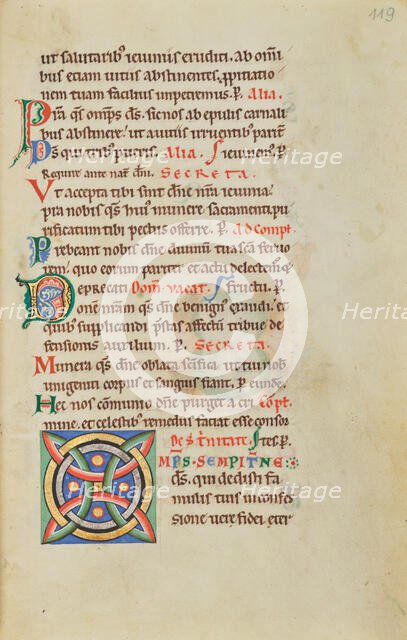 119
ut salutarib; ieiuniis eruditi. ab omi
bus etiam uitiis abstinentes. ppitatio
nem tuam facilius impetremus. p. Alia.
Pra qs omps ds. sic nos ab epulis carnali
bus abstinere. ut a uitiis irruentib;
Ps qui trib; pueris. Alia. S ieiuniis. p.
Require ante nat. dni. SECRETA.
Ut accepta tibi sint dne nra ieiunia
pra nobis qs hui munere sacramenti. pu
rificatum tibi pectus offerre. p. Ad Compl
Prebeant nobis dne diuinū tua sca feruo
rem. quo eorum pariter et actu delectem
Deprecati Dom uacat. S fructu. p.
onem nram qs dne benign exaudi. et
quib; supplicandi pstas affectū tribue de
fensionis auxilium. p. SECRETA.
Munera qs dne oblata scifica. ut tui nob
unigeniti corpus et sanguis fiant. p eunde.
Hec nos cōmunio dne purget a cri Copl.
mine. et celestib; remediis faciat esse consor
De S. Trinitate. S tes. p.
OMPS SEMPITNE
ds. qui dedisti fa
mulis tuis in confes
sione uere fidei. eter
Heritage
Heritage
Heritage
Heritage
Heritage
Heritage
Heritage
Heritage
Heritage